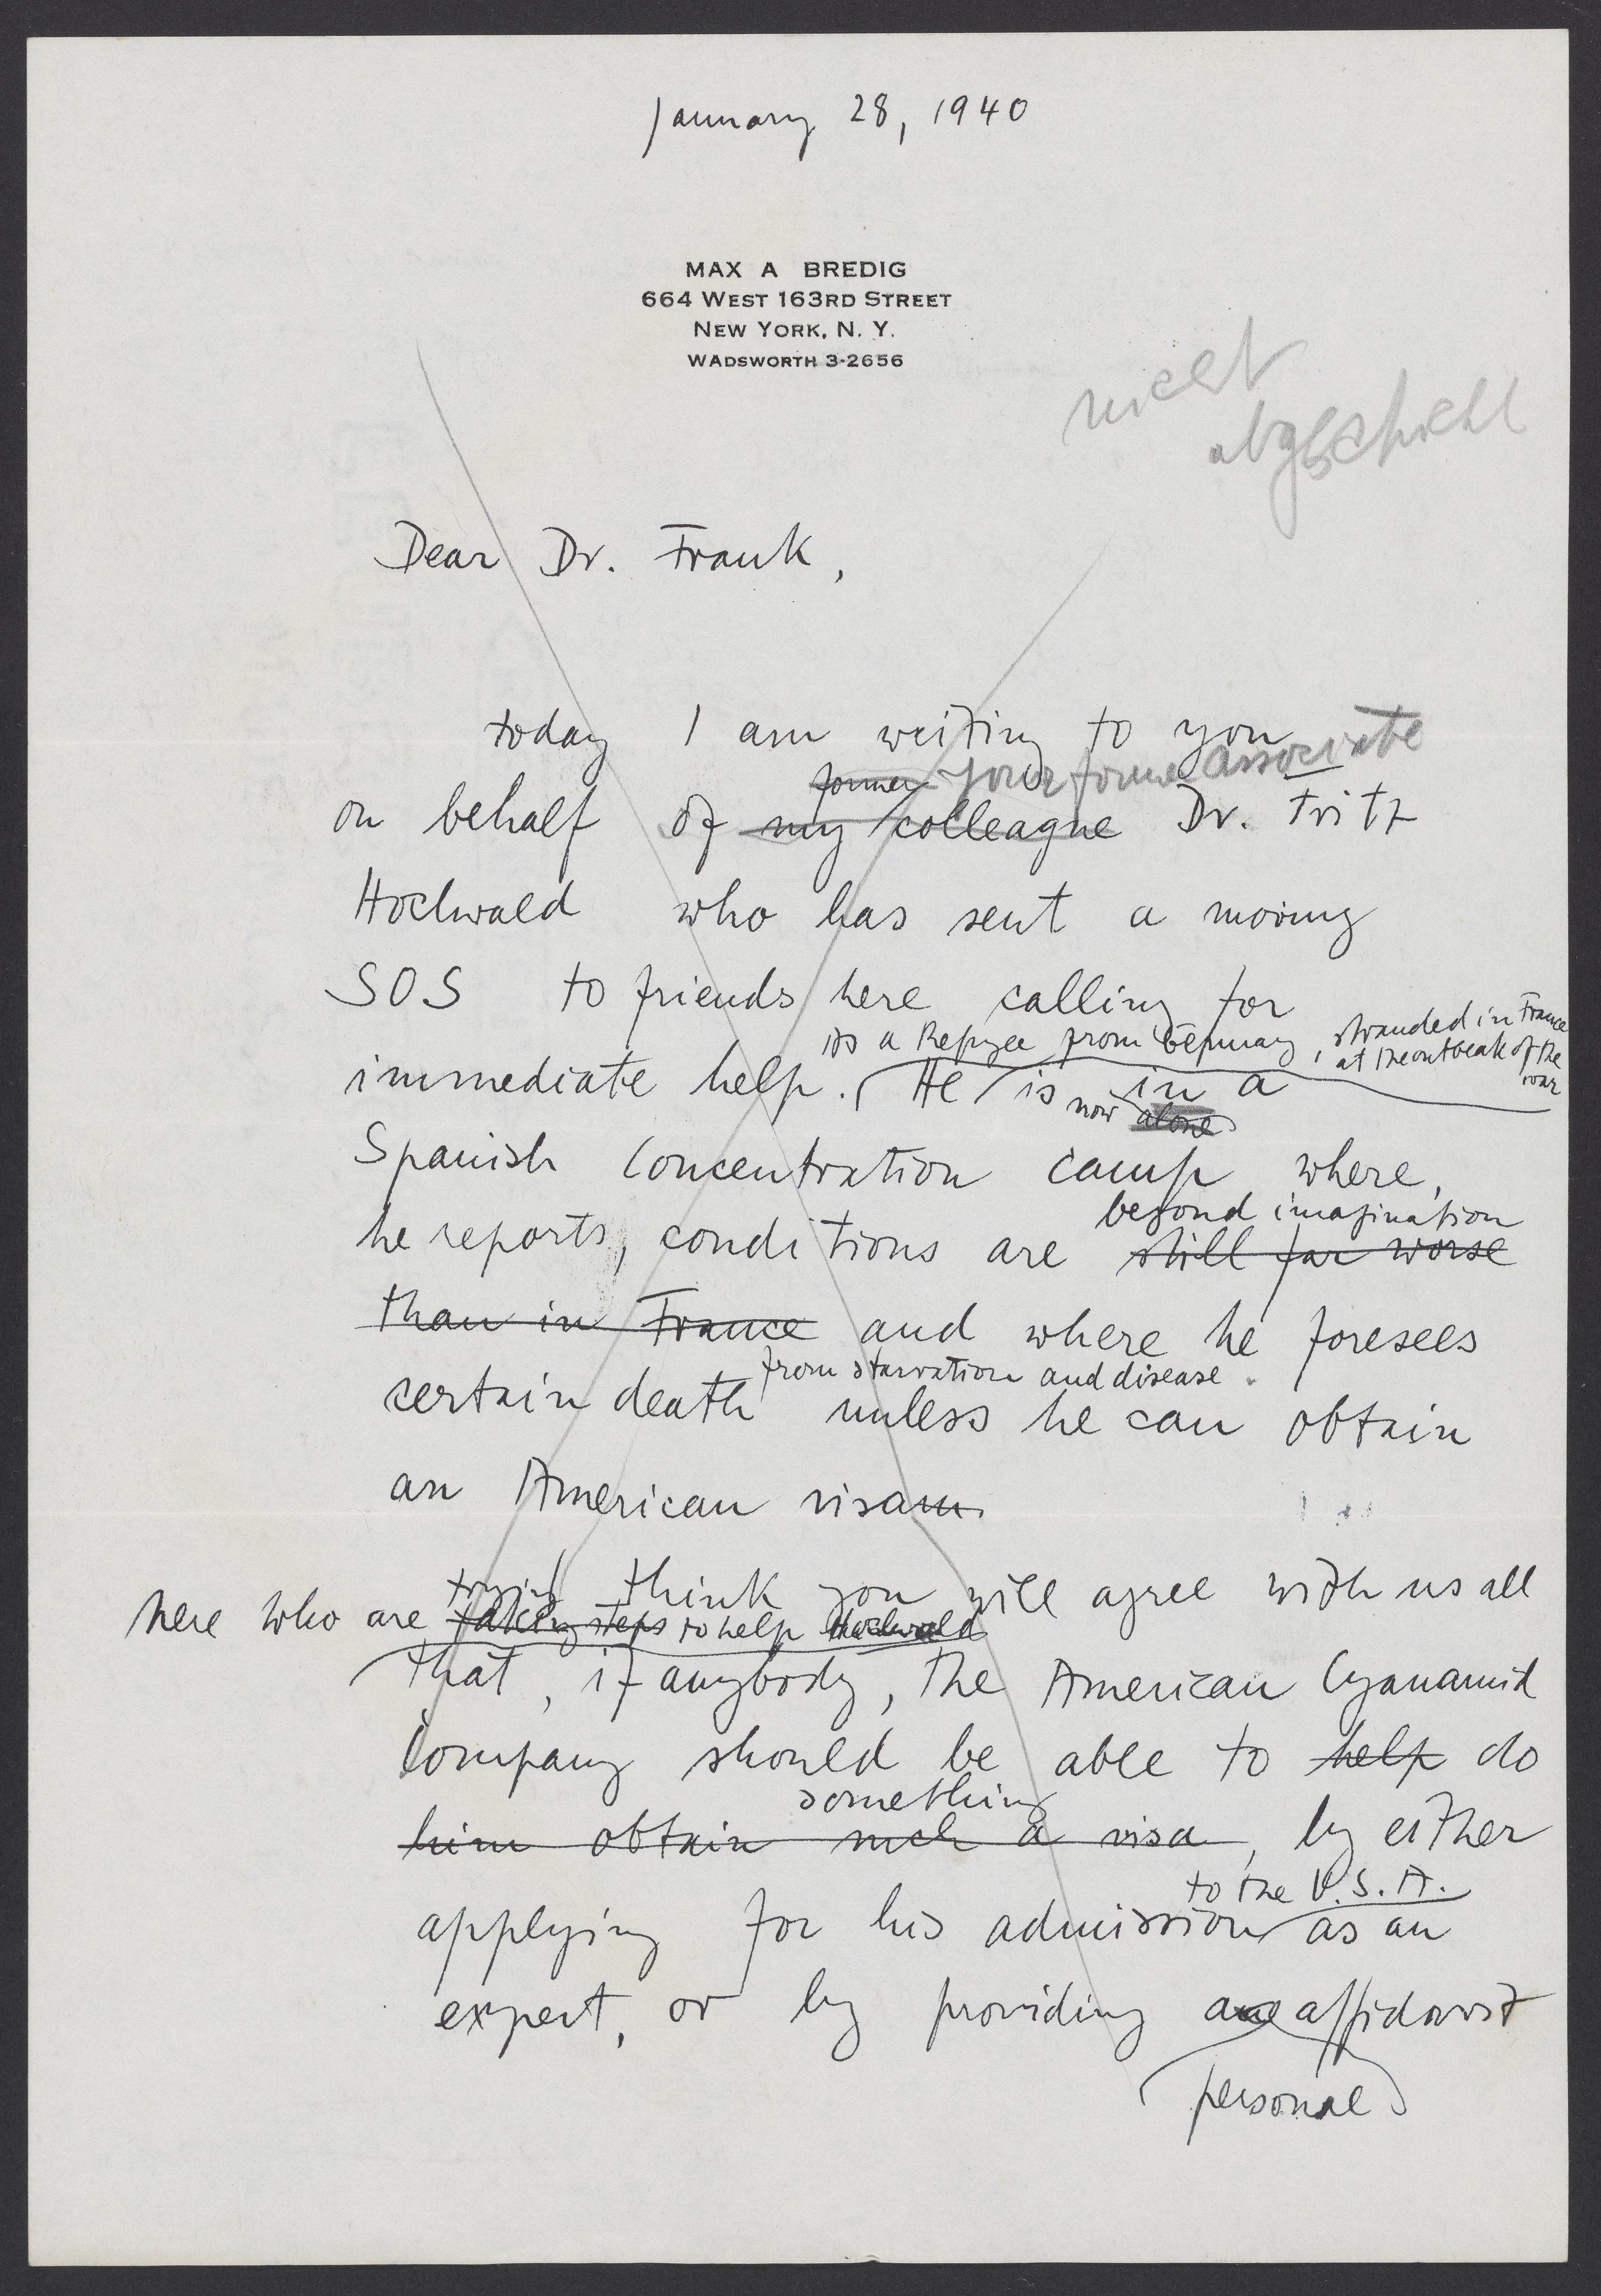 January 28, 1940
MAX A BREDIG
664 WEST 163RD STREET
NEW YORK, N. Y.
WADSWORTH 3-2656
nicht
abgeschickt
Dear Dr. Frank,
today I am writing to you
former your former associate
on behalf of my colleague Dr. Fritz
Hochwald who has sent a moving
SOS to friends here calling for
is a Refugee from Germany, stranded in France
at the outbreak of the
war
immediate help. He is in a
now alone
Spanish Concentration camp where,
beyond imagination
he reports, conditions are still far worse
than in France and where he foresees
from starvation and disease
certain death unless he can obtain
an American visum.
I think you will agree with us all
trying
here who are taking steps to help Hochwald
that, if anybody, the American Cyanamid
Company should be able to help do
something
him obtain such a visa, by either
to the U.S.A.
applying for his admission as an
expert, or by providing affidavit
personal